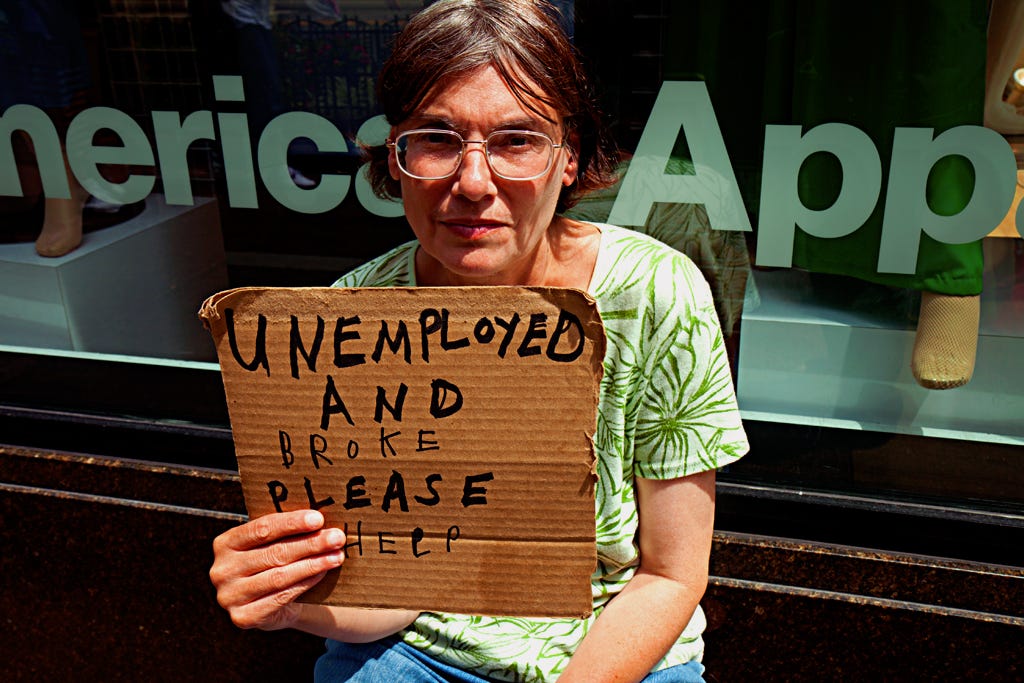 merica App
UNEMPLOYED
AND
BROKE
PLEASE
HELP